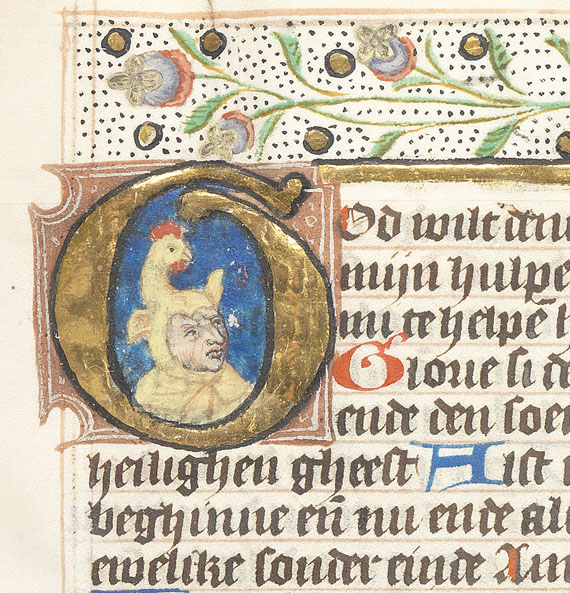 God wilt den
mijn hulpe
mi te helpē
Glorie si de
ende den soe
heilighen gheest Alst
beghinne eñ nu ende al
ewelike sonder einde Am